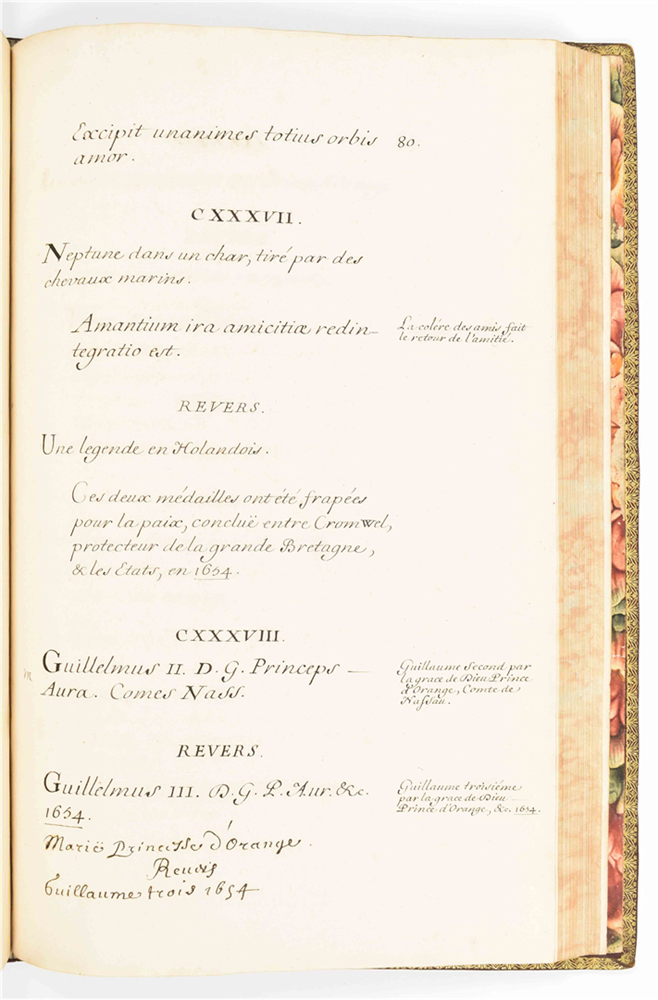 Excipit unanimes totius orbis 80.
amor.
CXXXVII.
Neptune dans un char, tiré par des
chevaux marins.
Amantium ira amicitiæ redin-
tegratio est.
La colére des amis fait
le retour de l'amitié.
REVERS.
Une legende en Holandois.
Ces deux médailles ont été frapées
pour la paix, concluë entre Cromwel,
protecteur de la grande Bretagne,
& les Etats, en 1654.
CXXXVIII.
Guillelmus II. D. G. Princeps
Aura. Comes Nass.
Guillaume second par
la grace de Dieu Prince
d'Orange, Comte de
Nassau.
REVERS.
Guillelmus III. D. G. P. Aur. &c.
1654.
Guillaume troisiéme
par la grace de Dieu
Prince d'Orange, &c. 1654.
Marië Princesse d'Orange.
Revers
Guillaume trois 1654